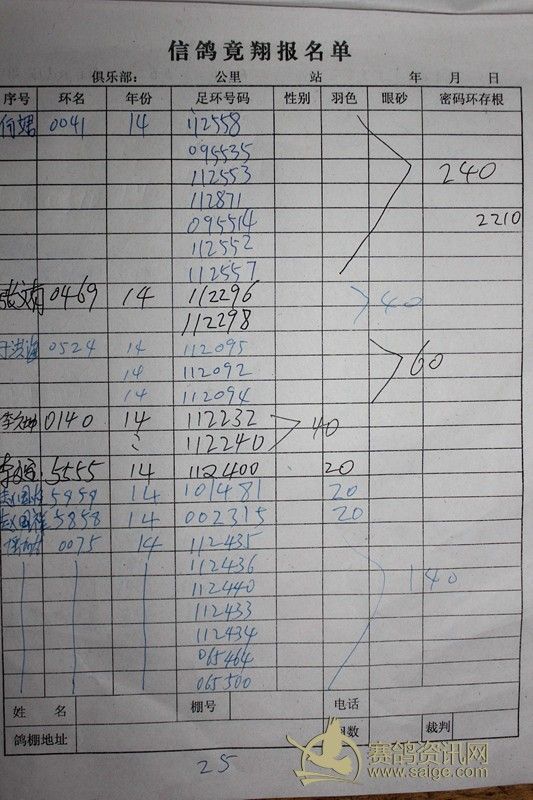 信鸽竟翔报名单
俱乐部： 公里 站 年 月 日
序号 环名 年份 足环号码 性别 羽色 眼砂 密码环存根
0041 14 112558
095535
112553 240
112871
095514 2210
112552
112557
0469 14 112296 40
112298
0524 14 112095
14 112092 60
14 112094
0140 14 112232 40
112240
5555 14 112400 20
5959 14 101481 20
5858 14 002315 20
0075 14 112435
112436
112440 140
112433
112434
065464
065500
姓 名 棚号 电话
鸽棚地址 羽数 裁判
25
赛鸽资讯网
www.saige.com